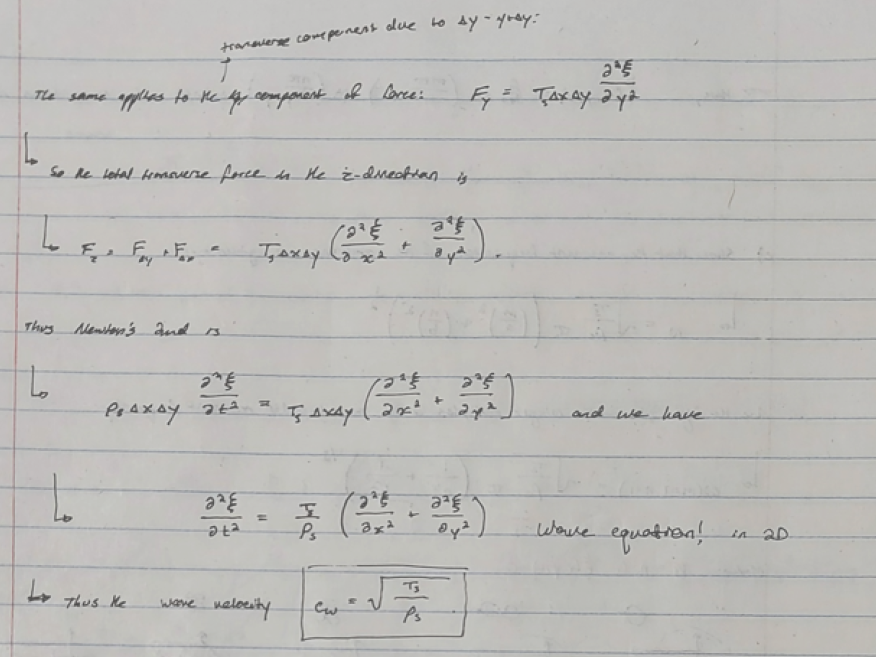 transverse component due to Δy - y+Δy:
The same applies to the Δy component of force: F_y = T_s Δx Δy ∂²ξ/∂y²
So the total transverse force in the z-direction is
F_z = F_Δy + F_Δx = T_s Δx Δy (∂²ξ/∂x² + ∂²ξ/∂y²).
Thus Newton's 2nd is
ρ_s Δx Δy ∂²ξ/∂t² = T_s Δx Δy (∂²ξ/∂x² + ∂²ξ/∂y²) and we have
∂²ξ/∂t² = T_s/ρ_s (∂²ξ/∂x² + ∂²ξ/∂y²) Wave equation! in 2D
Thus the wave velocity c_w = √(T_s/ρ_s)